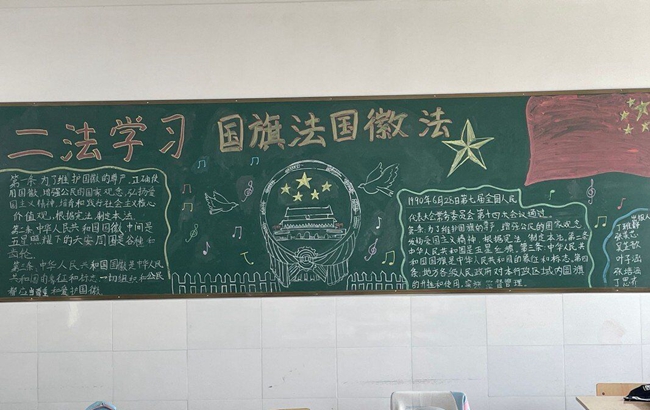 二法学习 国旗法国徽法
第一条为了维护国徽的尊严,正确使
用国徽,增强公民的国家观念,弘扬爱
国主义精神,培育和践行社会主义核心
价值观,根据宪法,制定本法。
第二条中华人民共和国国徽,中间是
五星照耀下的天安门,周围是谷穗和
齿轮。
第三条中华人民共和国国徽是中华人民
共和国的象征和标志,一切组织和公民
都应当尊重和爱护国徽
1990年6月28日第七届全国人民
代表大会常务委员会第十四次会议通过
第一条为了维护国旗的尊严,增强公民的国家观念,
发扬爱国主义精神,根据宪法,制定本法。第二条
中华人民共和国国旗是五星红旗。第三条中华人民共
和国国旗是中华人民共和国的象征和标志。第四
条地方各级人民政府对本行政区域内国旗
的升挂和使用,实施监督管理。
丁班静
叶子涵